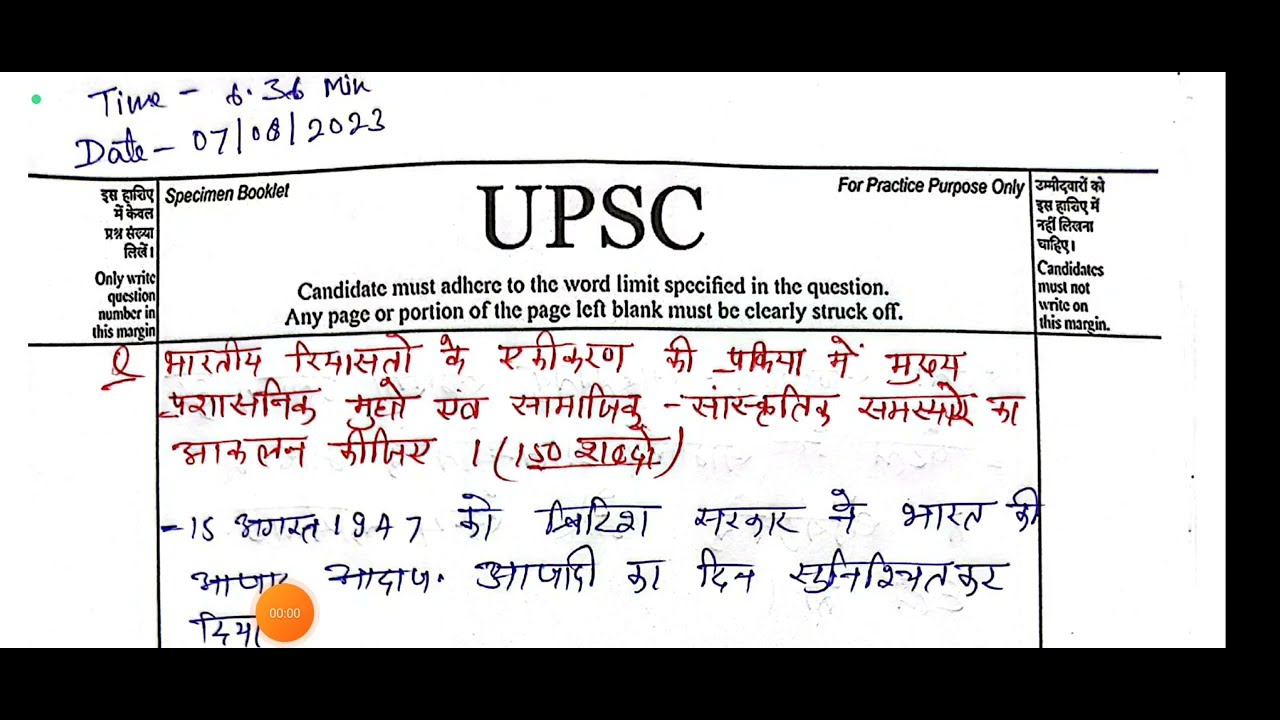 Time - 6.36 Min
Date - 07/08/2023
इस हाशिए
में केवल
प्रश्न संख्या
लिखें।
Only write
question
number in
this margin
Specimen Booklet
UPSC
For Practice Purpose Only
Candidate must adhere to the word limit specified in the question.
Any page or portion of the page left blank must be clearly struck off.
उम्मीदवारों को
इस हाशिए में
नहीं लिखना
चाहिए।
Candidates
must not
write on
this margin.
Q भारतीय रियासतो के एकीकरण की प्रकिया में मुख्य
प्रशासनिक मुद्यो एवं सामाजिक - सांस्कृतिक समस्याओ का
आकलन कीजिए । (150 शब्दो)
- 15 अगस्त 1947 को ब्रिटिश सरकार ने भारत की
आजादी का दिन सुनिश्चित कर
दिया
00:00